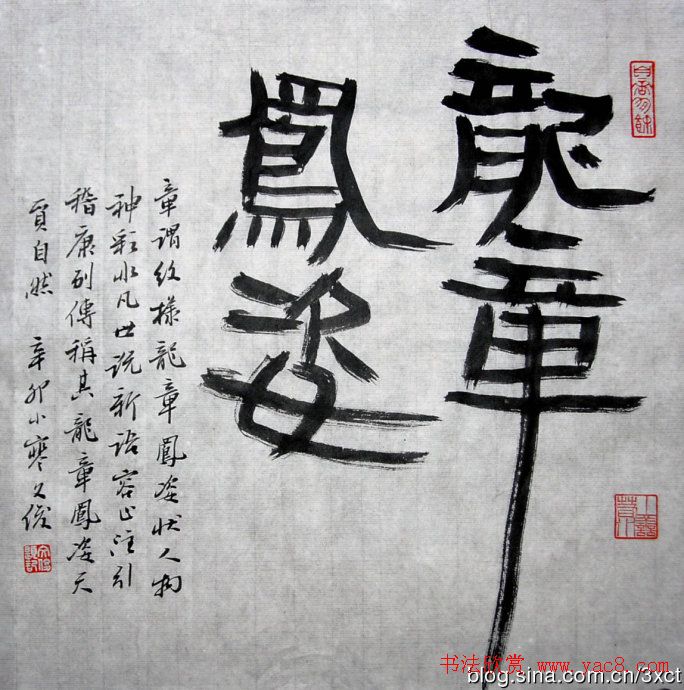 龍章
鳳姿
章謂紋様龍章鳳姿狀人物
神彩不凡世説新語容止注引
嵇康別傳稱其龍章鳳姿天
質自然 辛卯小寒文俊
书法欣赏 www.yac8.com
blog.sina.com.cn/3xct